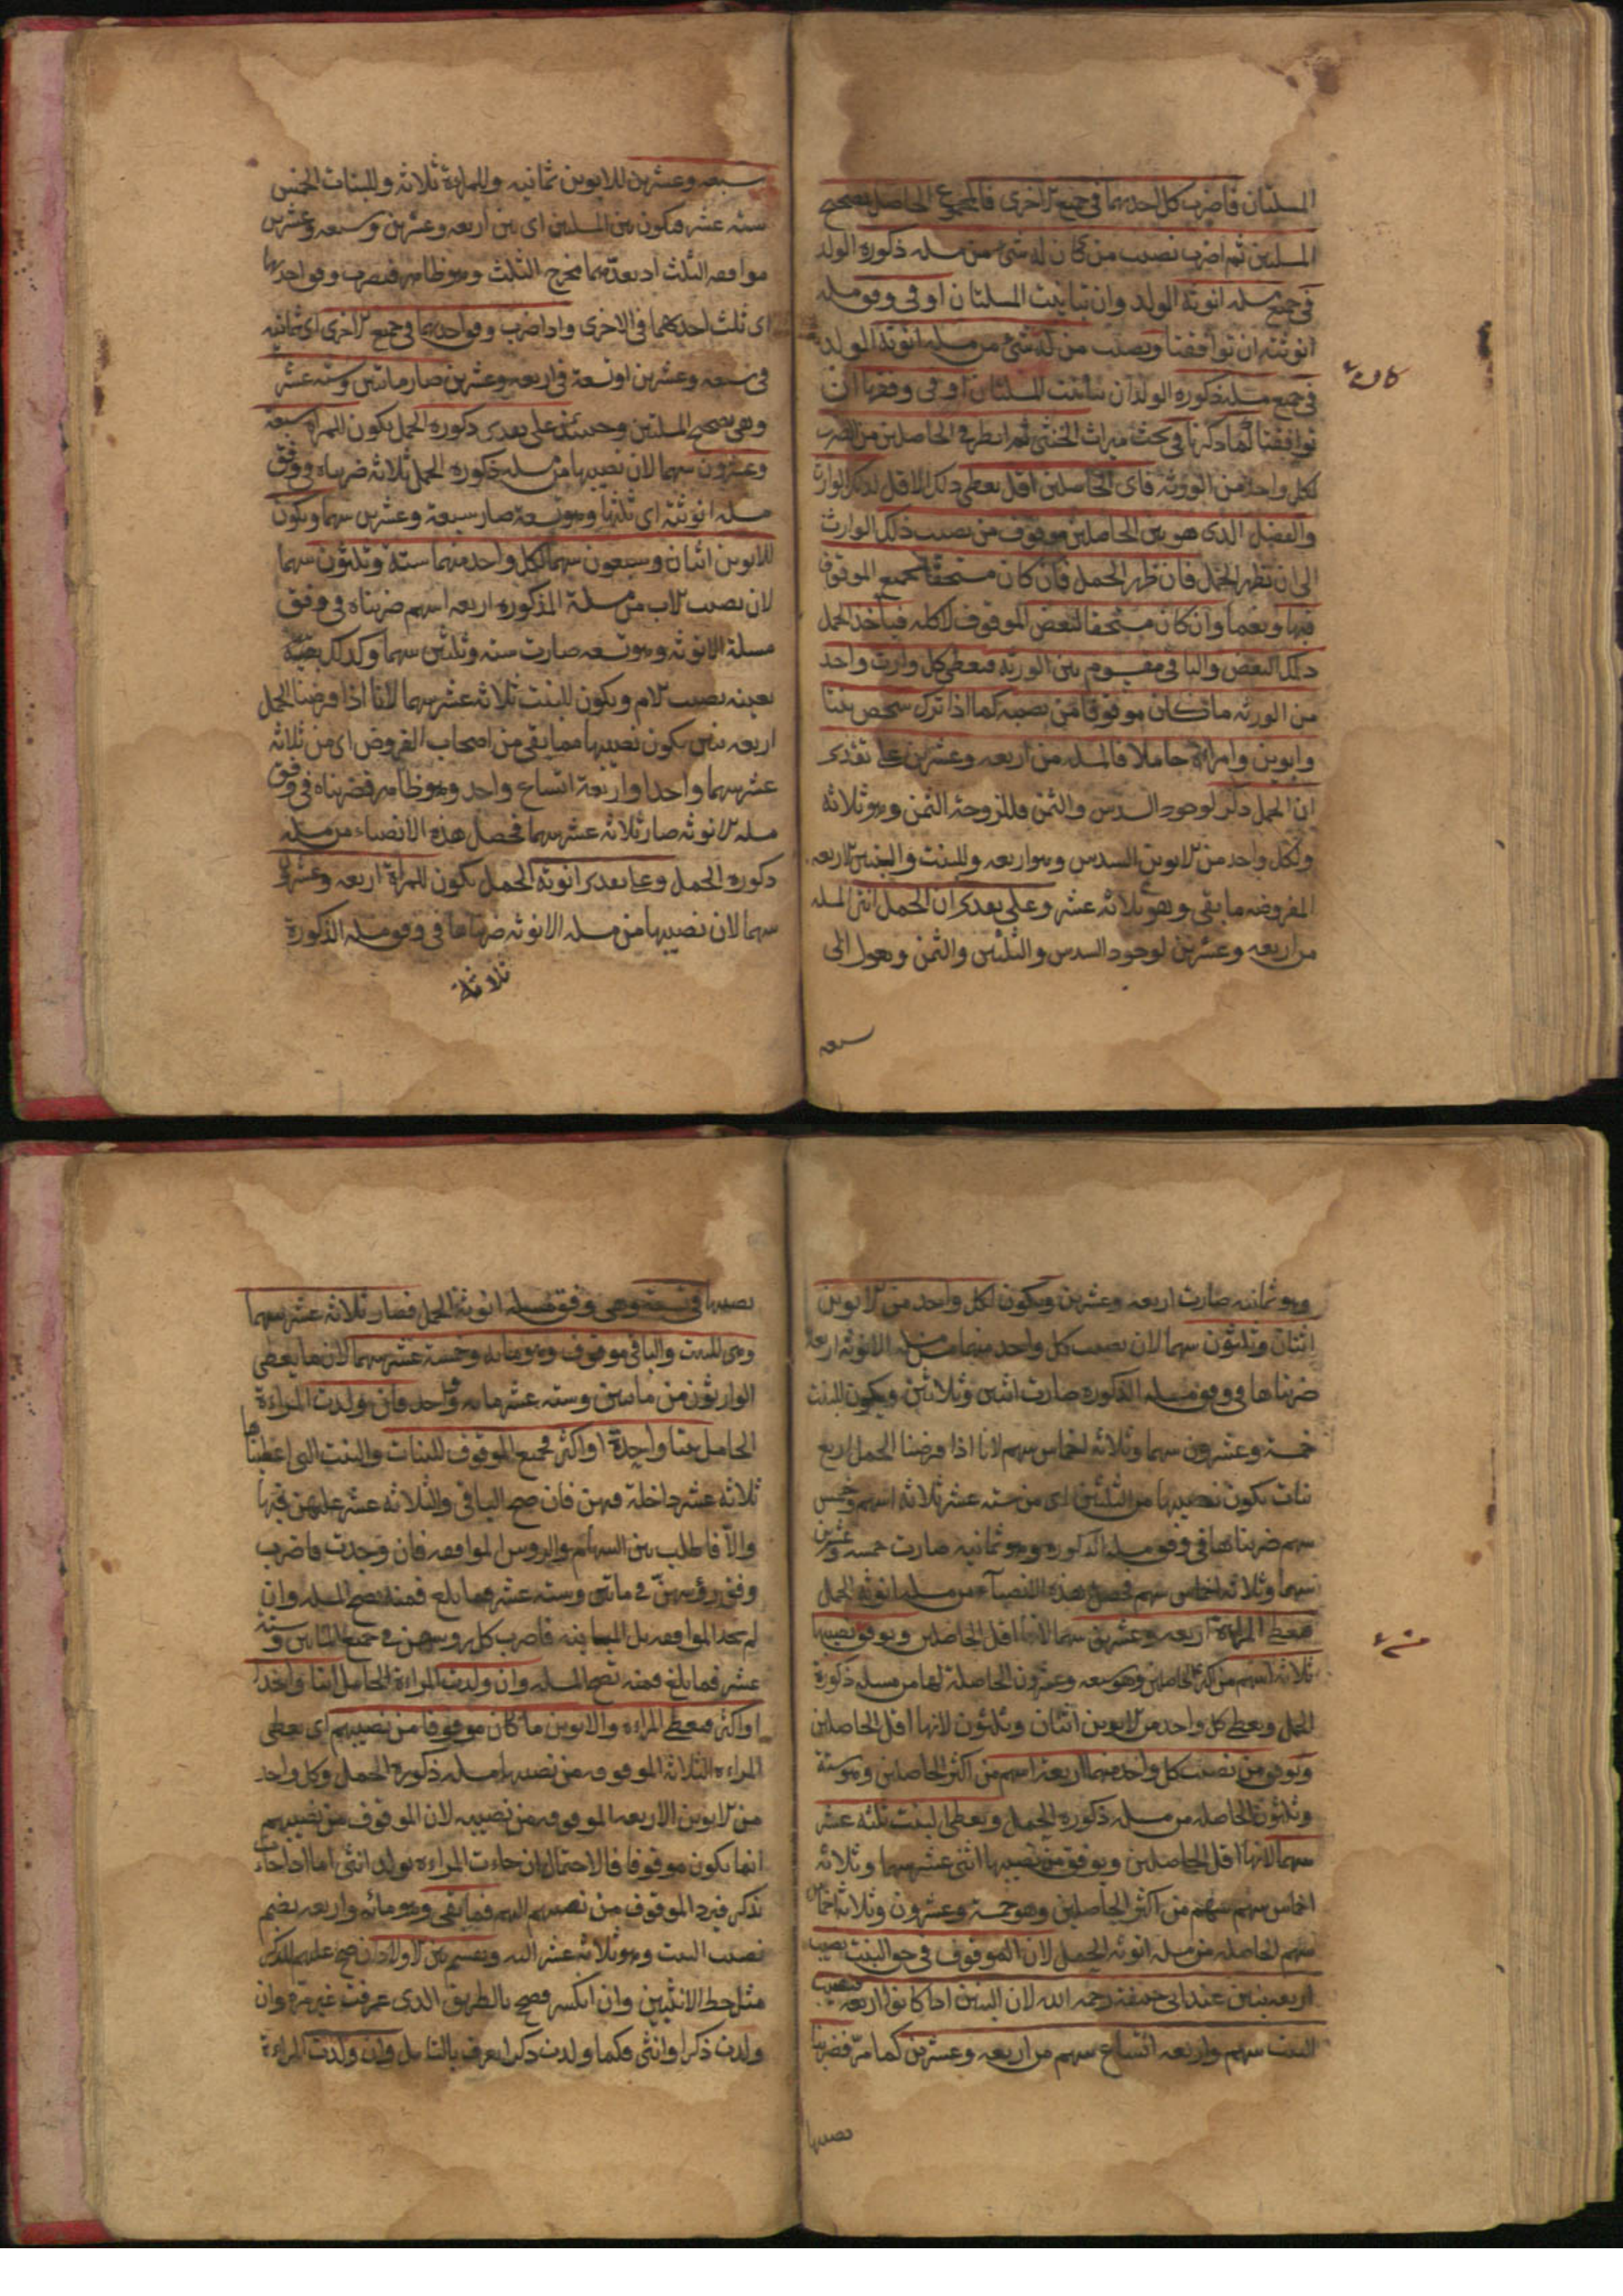 المسئلتان فاضرب كل احديهما فى جميع الاخرى فالمجموع الحاصل تصحيح
المسئلتين ثم اضرب نصيب من كان له شئ من مسئلة ذكورة الولد
فى جميع مسئلة انوثة الولد وان تباينت المسئلتان او فى وفق مسئلة
انوثته ان توافقتا ونصيب من له شئ من مسئلة انوثة الولد
فى جميع مسئلة ذكورة الولد ان تباينت المسئلتان او فى وفقها ان
توافقتا كما ذكرنا فى بحث ميراث الخنثى ثم انظر فى الحاصلين من الضرب
لكل واحد من الورثة فاى الحاصلين اقل يعطى ذلك الاقل لذلك الوارث
والفضل الذى هو بين الحاصلين موقوف من نصيب ذلك الوارث
الى ان يظهر الحمل فان ظهر الحمل فان كان مستحقا لجميع الموقوف
فبها ونعما وان كان مستحقا لبعض الموقوف لا كله فيأخذ الحمل
ذلك البعض والباقى مقسوم بين الورثة فيعطى كل وارث واحد
من الورثة ما كان موقوفا من نصيبه كما اذا ترك شخص بنتا
وابوين وامراة حاملا فالمسئلة من اربعة وعشرين على تقدير
ان الحمل ذكر لوجود السدس والثمن فللزوجة الثمن وهو ثلاثة
ولكل واحد من الابوين السدس وهو اربعة وللبنت والبنين الاربعة
المفروضة ما بقى وهو ثلاثة عشر وعلى تقدير ان الحمل انثى المسئلة
من اربعة وعشرين لوجود السدس والثلثين والثمن وتعول الى
سبعة
سبعة وعشرين للابوين ثمانية وللمراة ثلاثة وللبنات الخمس
ستة عشر فيكون بين المسئلتين اى بين اربعة وعشرين وسبعة وعشرين
موافقة الثلث اذ يعدّهما مخرج الثلث وهو ظاهر فيضرب وفق احديهما
اى ثلث احدكلهما فى الاخرى واذا ضرب وفق احديهما فى جميع الاخرى اى ثمانية
فى سبعة وعشرين او تسعة فى اربعة وعشرين صار مائتين وستة عشر
وهى تصحيح المسئلتين وحينئذ على تقدير ذكورة الحمل يكون للمراة سبعة
وعشرون سهما لان نصيبها من مسئلة ذكورة الحمل ثلاثة ضربناه فى وفق
مسئلة انوثته اى ثلثها وهو تسعة صار سبعة وعشرين سهما ويكون
للابوين اثنان وسبعون سهما لكل واحد منهما ستة وثلثون سهما
لان نصيب الاب من مسئلة المذكورة اربعة اسهم ضربناه فى وفق
مسئلة الانوثة وهو تسعة صارت ستة وثلثين سهما وكذلك
بعينه نصيب الام ويكون للبنت ثلاثة عشر سهما لانا اذا فرضنا الحمل
اربعة بنين يكون نصيبها مما بقى من اصحاب الفروض اى من ثلاثة
عشر سهما واحدا واربعة اتساع واحد وهو ظاهر فضربناه فى وفق
مسئلة الانوثة صار ثلاثة عشر سهما فحصل هذه الانصباء من مسئلة
ذكورة الحمل وعلى تقدير انوثة الحمل يكون للمراة اربعة وعشرون
سهما لان نصيبها من مسئلة الانوثة ضربناها فى وفق مسئلة الذكورة
ثلاثة
وهو ثمانية صارت اربعة وعشرين ويكون لكل واحد من الابوين
اثنان وثلثون سهما لان نصيب كل واحد منهما من مسئلة الانوثة اربعة
ضربناها فى وفق مسئلة الذكورة صارت اثنين وثلاثين ويكون للبنت
خمسة وعشرون سهما وثلاثة اخماس سهم لانا اذا فرضنا الحمل اربع
بنات يكون نصيبها من الثلثين اى من ستة عشر ثلاثة اسهم وخمس
سهم ضربناها فى وفق مسئلة الذكورة وهو ثمانية صارت خمسة وعشرين
سهما وثلاثة اخماس سهم فحصل هذه الانصباء من مسئلة انوثة الحمل
فيعطى المراة اربعة وعشرين سهما لانها اقل الحاصلين ويوقف نصيبها
ثلاثة اسهم من اكثر الحاصلين وهو سبعة وعشرون الحاصلة لها من مسئلة ذكورة
الحمل ويعطى كل واحد من الابوين اثنان وثلثون لانها اقل الحاصلين
ويوقف من نصيب كل واحد منهما اربعة اسهم من اكثر الحاصلين وهو ستة
وثلثون الحاصلة من مسئلة ذكورة الحمل ويعطى البنت ثلثة عشر
سهما لانها اقل الحاصلين ويوقف من نصيبها اثنى عشر سهما وثلاثة
اخماس سهم سهم من اكثر الحاصلين وهو خمسة وعشرون وثلاثة اخماس
سهم الحاصلة من مسئلة انوثة الحمل لان الموقوف فى حق البنت نصيب
اربعة بنين عند ابى حنيفة رحمه الله لان البنين اذا كانوا اربعة فنصيب
البنت سهم واربعة اتساع سهم من اربعة وعشرين كما مرّ فضربنا
نصيبها
نصيبها فى تسعة وهى وفق مسئلة انوثة الحمل فصار ثلاثة عشر سهما
وهى للبنت والباقى موقوف وهو مائة وخمسة عشر سهما لان ما يعطى
الوارثون من مائتين وستة عشر مائة وواحد فان ولدت المراءة
الحامل بنتا واحدة او اكثر فجميع الموقوف للبنات والبنت التى اعطيناها
ثلاثة عشر داخلة فيهن فان صح الباقى والثلاثة عشر عليهن فبها
والاّ فاطلب بين السهام والروس الموافقة فان وجدت فاضرب
وفق رؤسهنّ فى مائتين وستة عشر فما بلغ فمنه تصح المسئلة وان
لم تجد الموافقة بل المباينة فاضرب كل روسهن فى جميع المائتين وستة
عشر فما بلغ فمنه تصح المسئلة وان ولدت المراءة الحامل ابنا واحدا
او اكثر فيعطى المراءة والابوين ما كان موقوفا من نصيبهم اى يعطى
المراءة الثلاثة الموقوفة من نصيبها من مسئلة ذكورة الحمل وكل واحد
من الابوين الاربعة الموقوفة من نصيبه لان الموقوف من نصيبهم
انما يكون موقوفا فالاحتمال ان جاءت المراءة بولد انثى اما اذا جاءت
بذكر فيرد الموقوف من نصيبهم اليهم فما بقى وهو مائة واربعة يضم
نصيب البنت وهو ثلاثة عشر اليه ويقسم بين الاولاد ان صح عليهم للذكر
مثل حظ الانثيين وان انكسر فصح بالطريق الذى عرفت غير مرة وان
ولدت ذكرا وانثى فكما ولدت ذكرا يعرف بالتامل وان ولدت المراءة